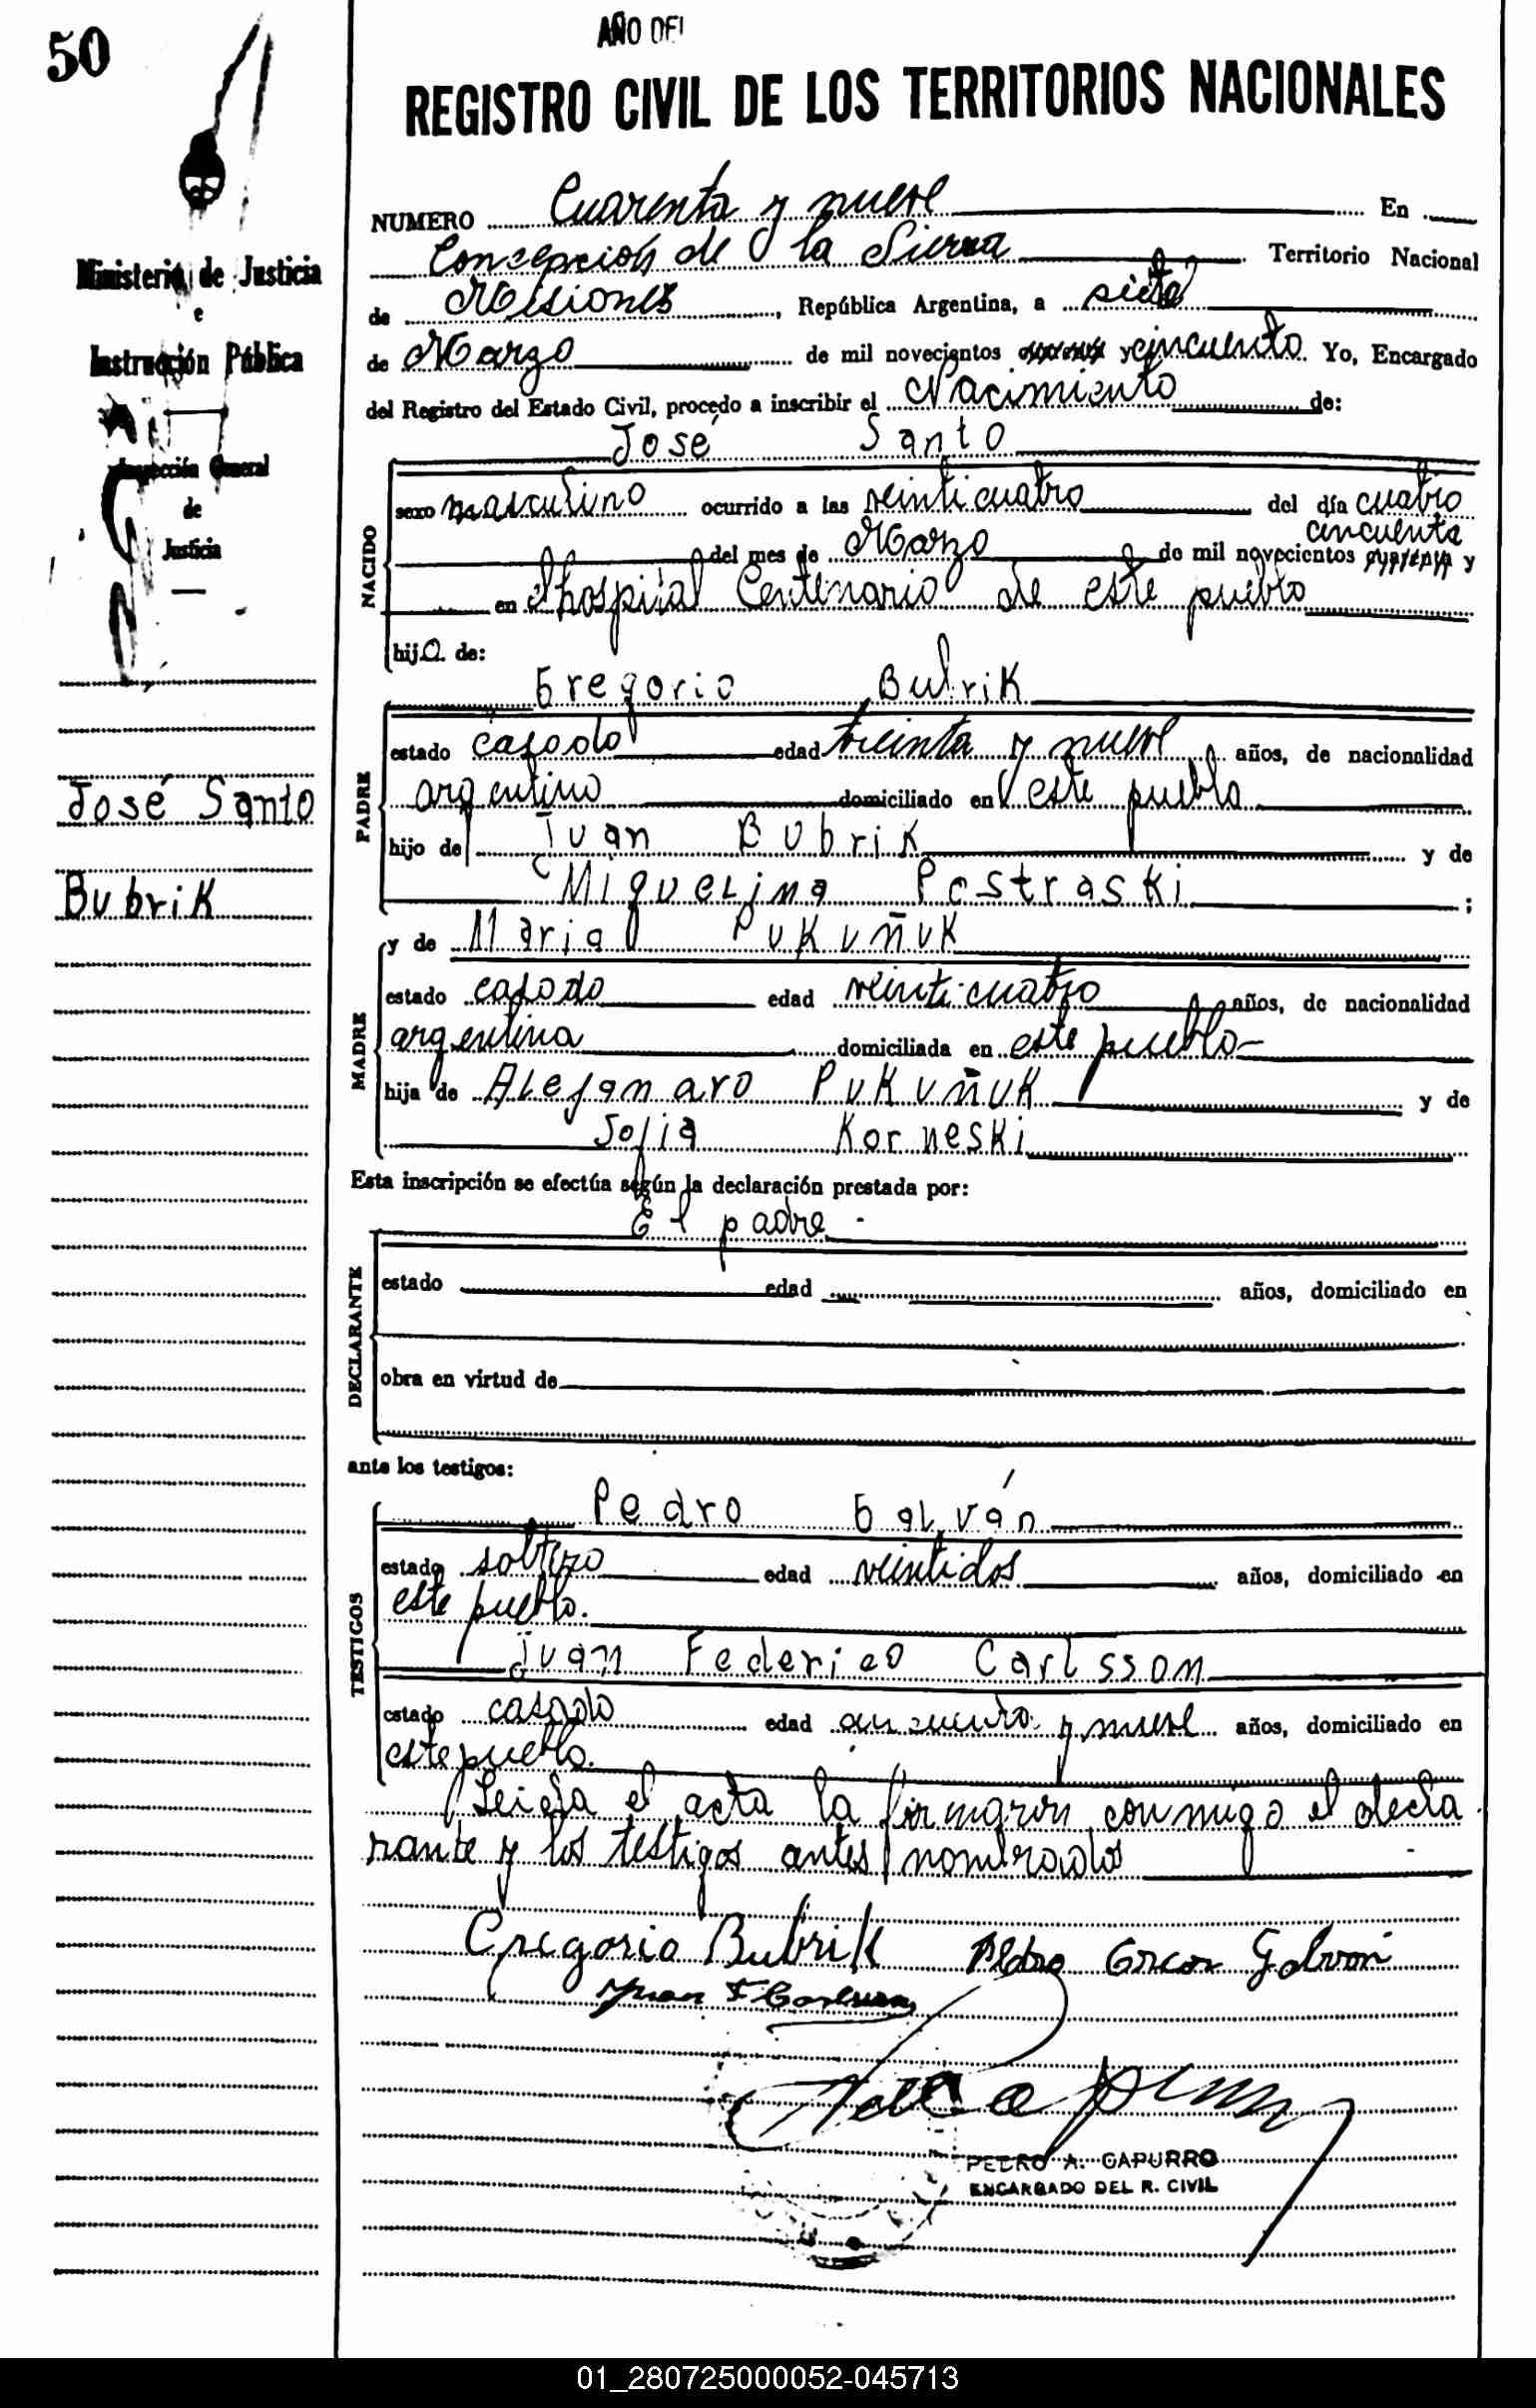 50
AÑO DEL
REGISTRO CIVIL DE LOS TERRITORIOS NACIONALES
Ministerio de Justicia
e
Instrucción Pública
Inspección General
de
Justicia
José Santo
Bubrik
NUMERO Cuarenta y nueve En
Concepción de la Sierra Territorio Nacional
de Misiones, República Argentina, a siete
de Marzo de mil novecientos y cincuenta. Yo, Encargado
del Registro del Estado Civil, procedo a inscribir el Nacimiento de:
José Santo
NACIDO
sexo masculino ocurrido a las veinticuatro del día cuatro
cincuenta
del mes de Marzo de mil novecientos cuarenta y
en el hospital Centenario de este pueblo
hijo. de:
Gregorio Bubrik
PADRE
estado casado edad treinta y nueve años, de nacionalidad
argentino domiciliado en este pueblo
hijo de Juan Bubrik y de
Miguelina Postraski ;
MADRE
y de Maria Pukuñuk
estado casado edad veinticuatro años, de nacionalidad
argentina domiciliada en este pueblo-
hija de Alejandro Pukuñuk y de
Sofia Korneski
Esta inscripción se efectúa según la declaración prestada por:
El padre -
DECLARANTE
estado edad años, domiciliado en
obra en virtud de
ante los testigos:
TESTIGOS
Pedro Galván
estado soltero edad veintidos años, domiciliado en
este pueblo.
Juan Federico Carlsson
estado casado edad cincuenta y nueve años, domiciliado en
este pueblo.
Leida el acta la firmaron conmigo el decla
rante y los testigos antes nombrados
Gregorio Bubrik Pedro Galván
Juan F Carlsson
PEDRO A. CAPURRO
ENCARGADO DEL R. CIVIL
01_280725000052-045713